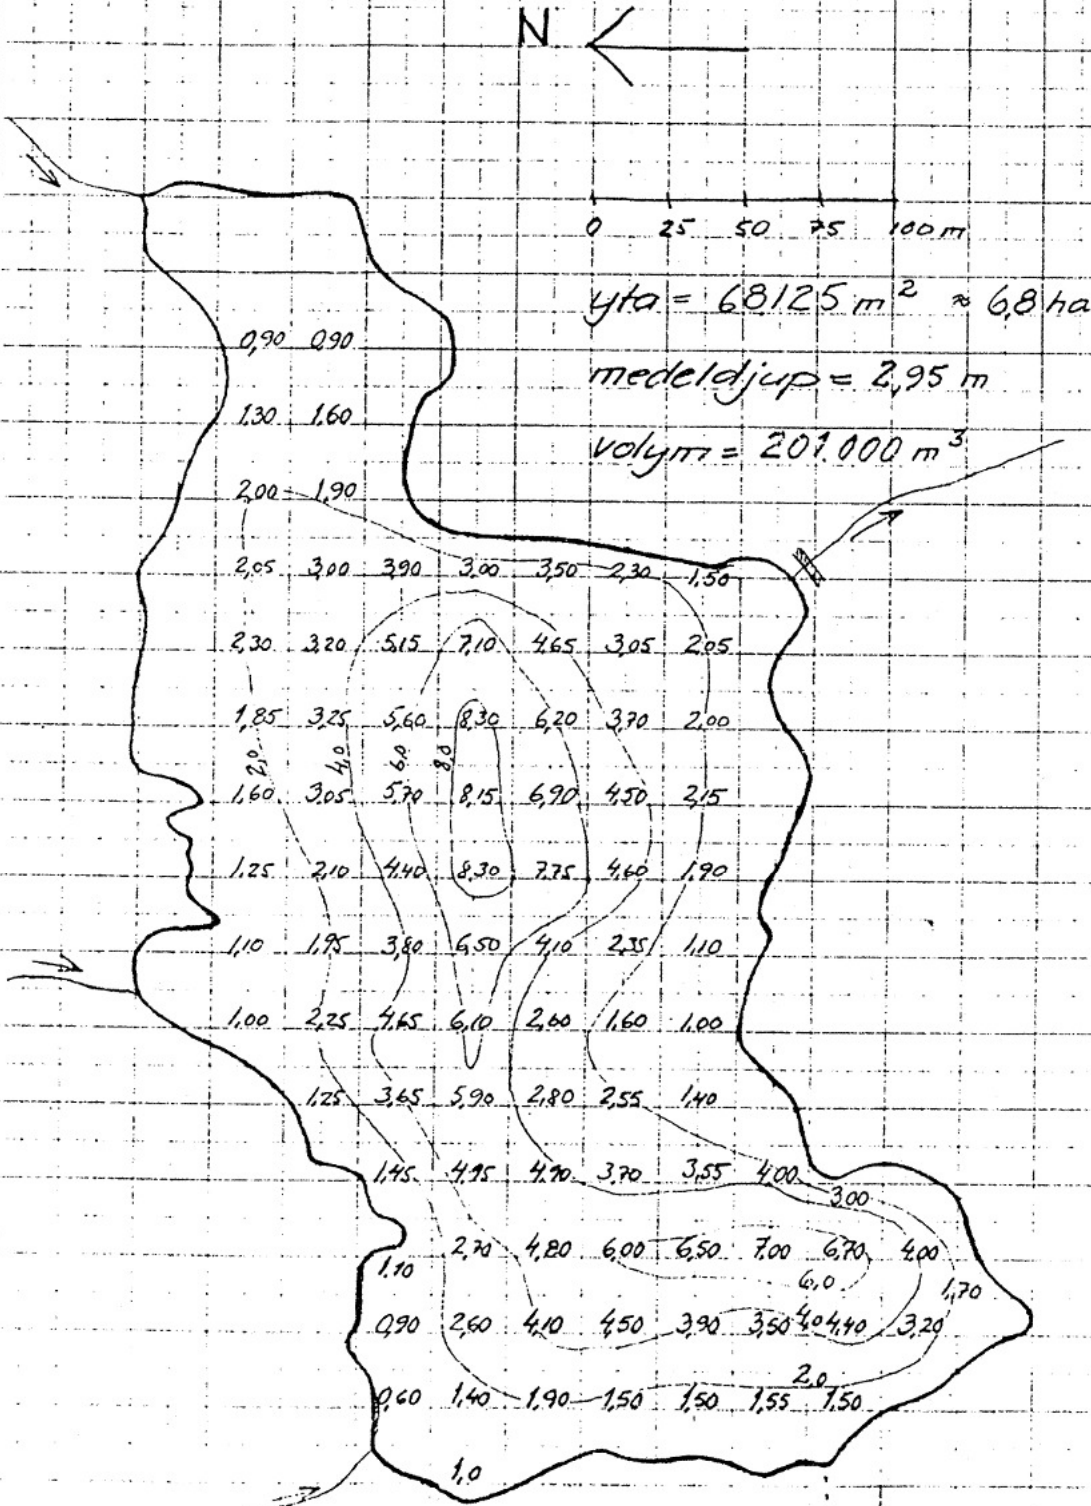 N
0 25 50 75 100 m
yta = 68125 m² ≈ 6,8 ha
medeldjup = 2,95 m
volym = 201.000 m³
0,90 0,90
1,30 1,60
2,00 1,90
2,05 3,00 3,90 3,00 3,50 2,30 1,50
2,30 3,20 5,15 7,10 4,65 3,05 2,05
1,85 3,25 5,60 8,30 6,20 3,70 2,00
2,0 4,0 6,0 8,0
1,60 3,05 5,70 8,15 6,90 4,50 2,15
1,25 2,10 4,40 8,30 7,75 4,60 1,90
1,10 1,95 3,80 6,50 4,10 2,35 1,10
1,00 2,25 4,65 6,10 2,60 1,60 1,00
1,25 3,65 5,90 2,80 2,55 1,40
1,45 4,95 4,90 3,70 3,55 4,00
3,00
2,70 4,80 6,00 6,50 7,00 6,70 4,00
1,10 6,0 1,70
0,90 2,60 4,10 4,50 3,90 3,50 4,0 4,40 3,20
2,0
0,60 1,40 1,90 1,50 1,50 1,55 1,50
1,0